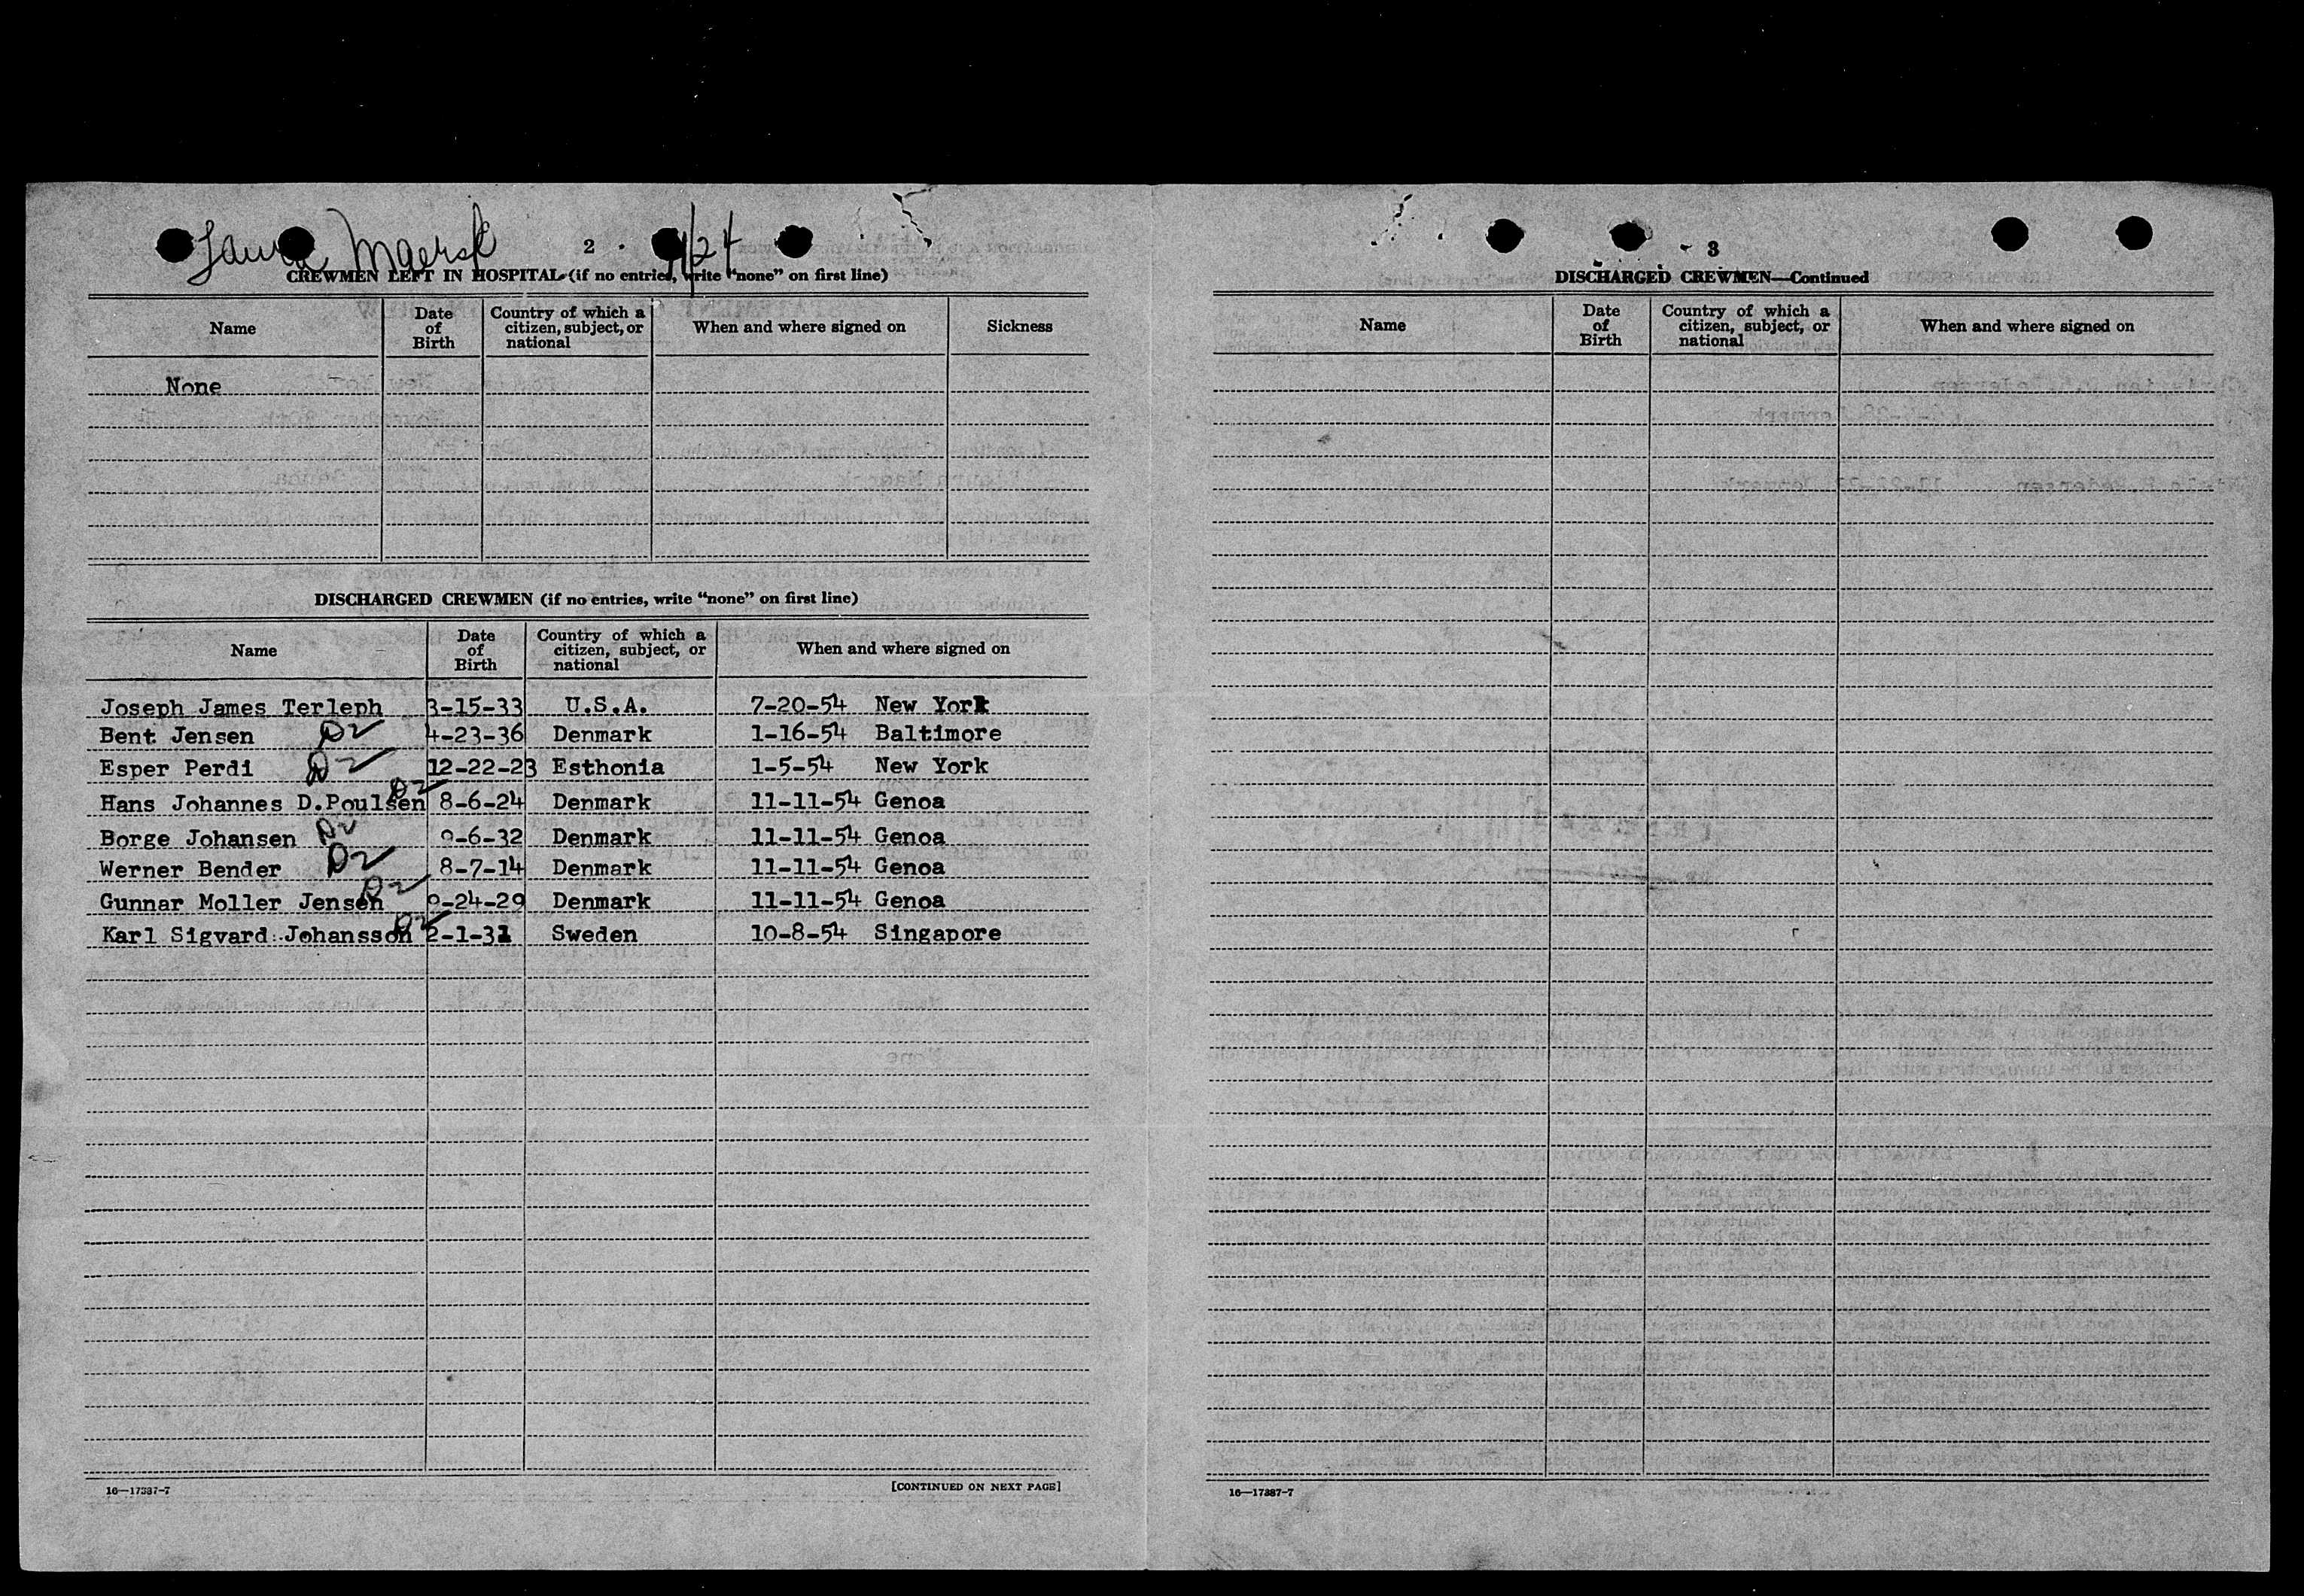 Laura Maersk 2 1/24
CREWMEN LEFT IN HOSPITAL (if no entries, write "none" on first line)
Name Date of Birth Country of which a citizen, subject, or national When and where signed on Sickness
None
DISCHARGED CREWMEN (if no entries, write "none" on first line)
Name Date of Birth Country of which a citizen, subject, or national When and where signed on
Joseph James Terleph 3-15-33 U.S.A. 7-20-54 New York
Bent Jensen D2 4-23-36 Denmark 1-16-54 Baltimore
Esper Perdi D2 12-22-23 Esthonia 1-5-54 New York
Hans Johannes D.Poulsen D2 8-6-24 Denmark 11-11-54 Genoa
Borge Johansen D2 9-6-32 Denmark 11-11-54 Genoa
Werner Bender D2 8-7-14 Denmark 11-11-54 Genoa
Gunnar Moller Jensen D2 9-24-29 Denmark 11-11-54 Genoa
Karl Sigvard Johansson D2 2-1-31 Sweden 10-8-54 Singapore
16—17387-7 [CONTINUED ON NEXT PAGE]
3
DISCHARGED CREWMEN—Continued
Name Date of Birth Country of which a citizen, subject, or national When and where signed on
16—17387-7